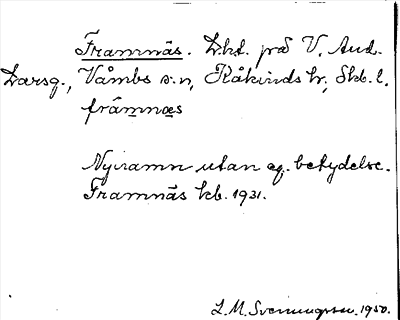 Framnäs. Lht. på V. And.
Larsg., Våmbs s:n, Kåkinds hr, Skb. l.
främnæs
Nyvamn utan eg. betydelse.
Framnäs kb. 1931.
L. M. Svenungsson. 1950.